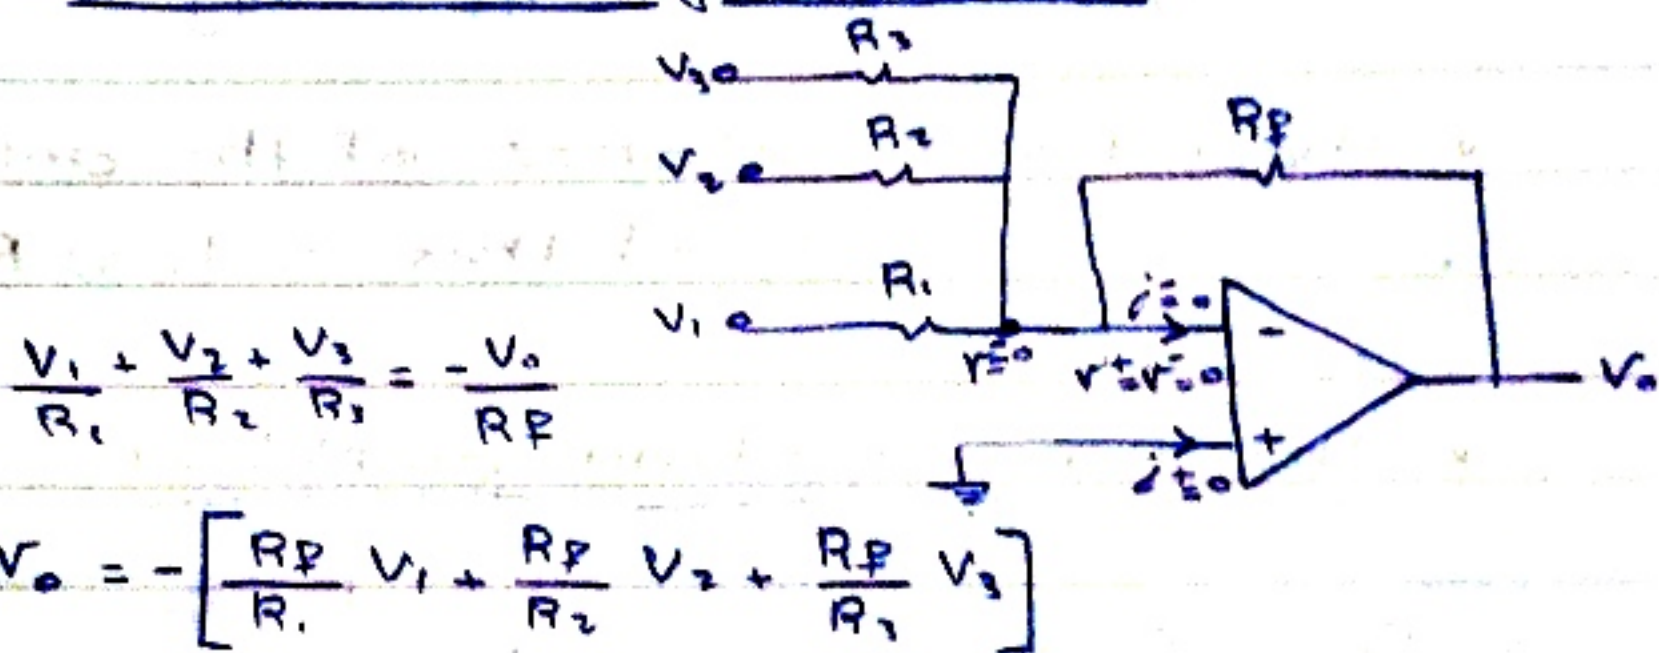 R₃
V₃
R₂
V₂
Rf
R₁
V₁
i⁻=0
v⁻=0
v⁺=v⁻=0
-
+
i⁺=0
V₀
V₁/R₁ + V₂/R₂ + V₃/R₃ = - V₀/Rf
V₀ = -[Rf/R₁ V₁ + Rf/R₂ V₂ + Rf/R₃ V₃]